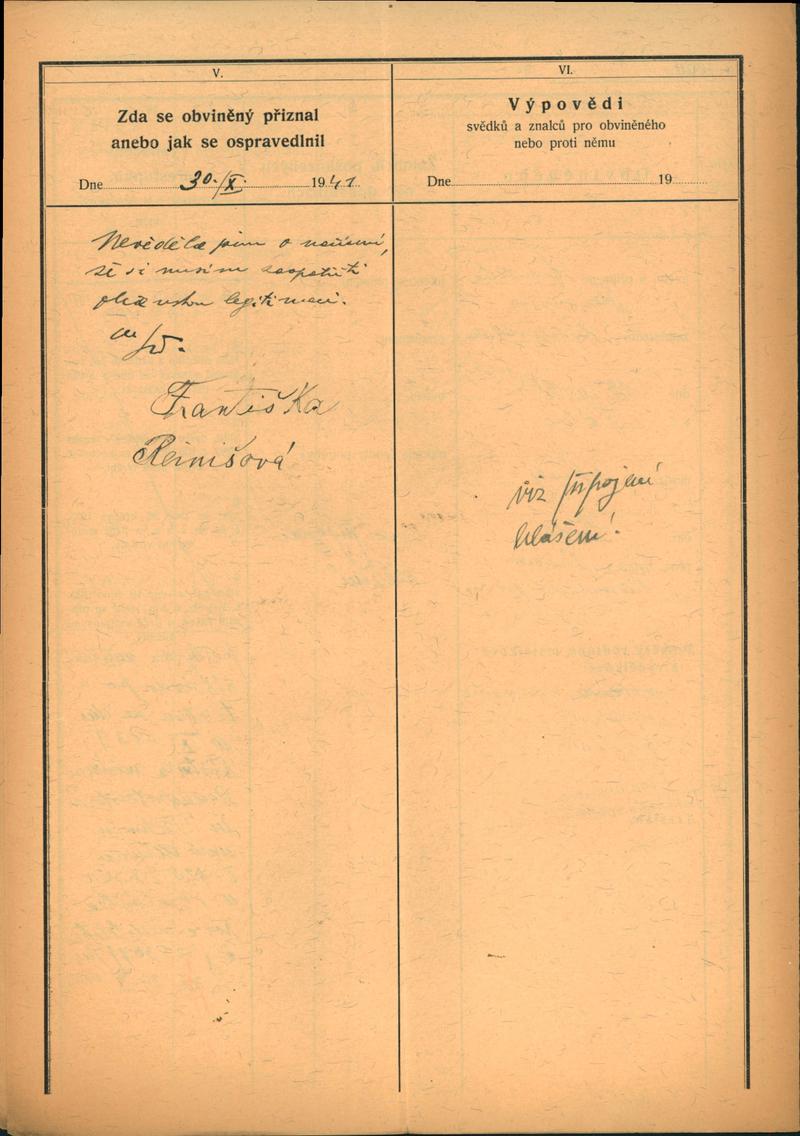 V.
Zda se obviněný přiznal
anebo jak se ospravedlnil
Dne 30./X. 1941.
Nevěděla jsem o nařízení,
že si musím zaopatřiti
občanskou legitimaci.
Františka
Reinišová
VI.
Výpovědi
svědků a znalců pro obviněného
nebo proti němu
Dne 19
viz připojení
hlášení.